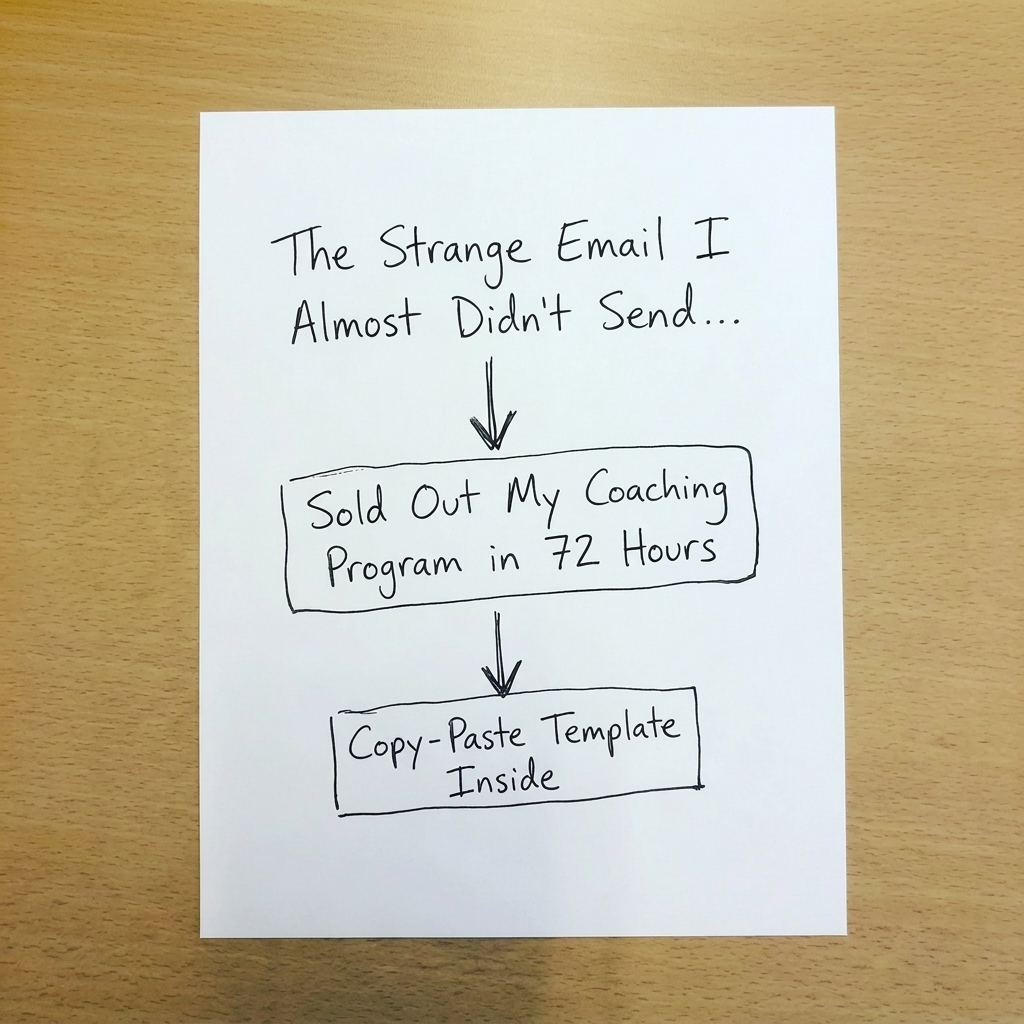 The Strange Email I
Almost Didn't Send...
Sold Out My Coaching
Program in 72 Hours
Copy-Paste Template
Inside